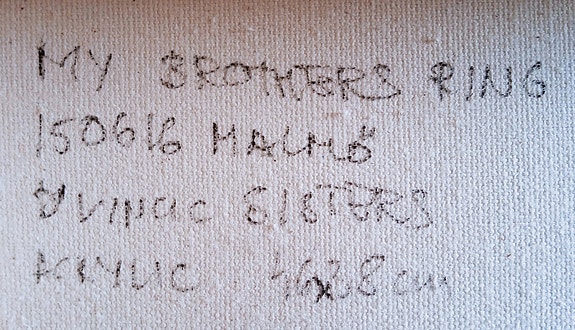 MY BROTHERS RING
150616 MALMÖ
SISTERS
ACRYLIC 46x38 cm